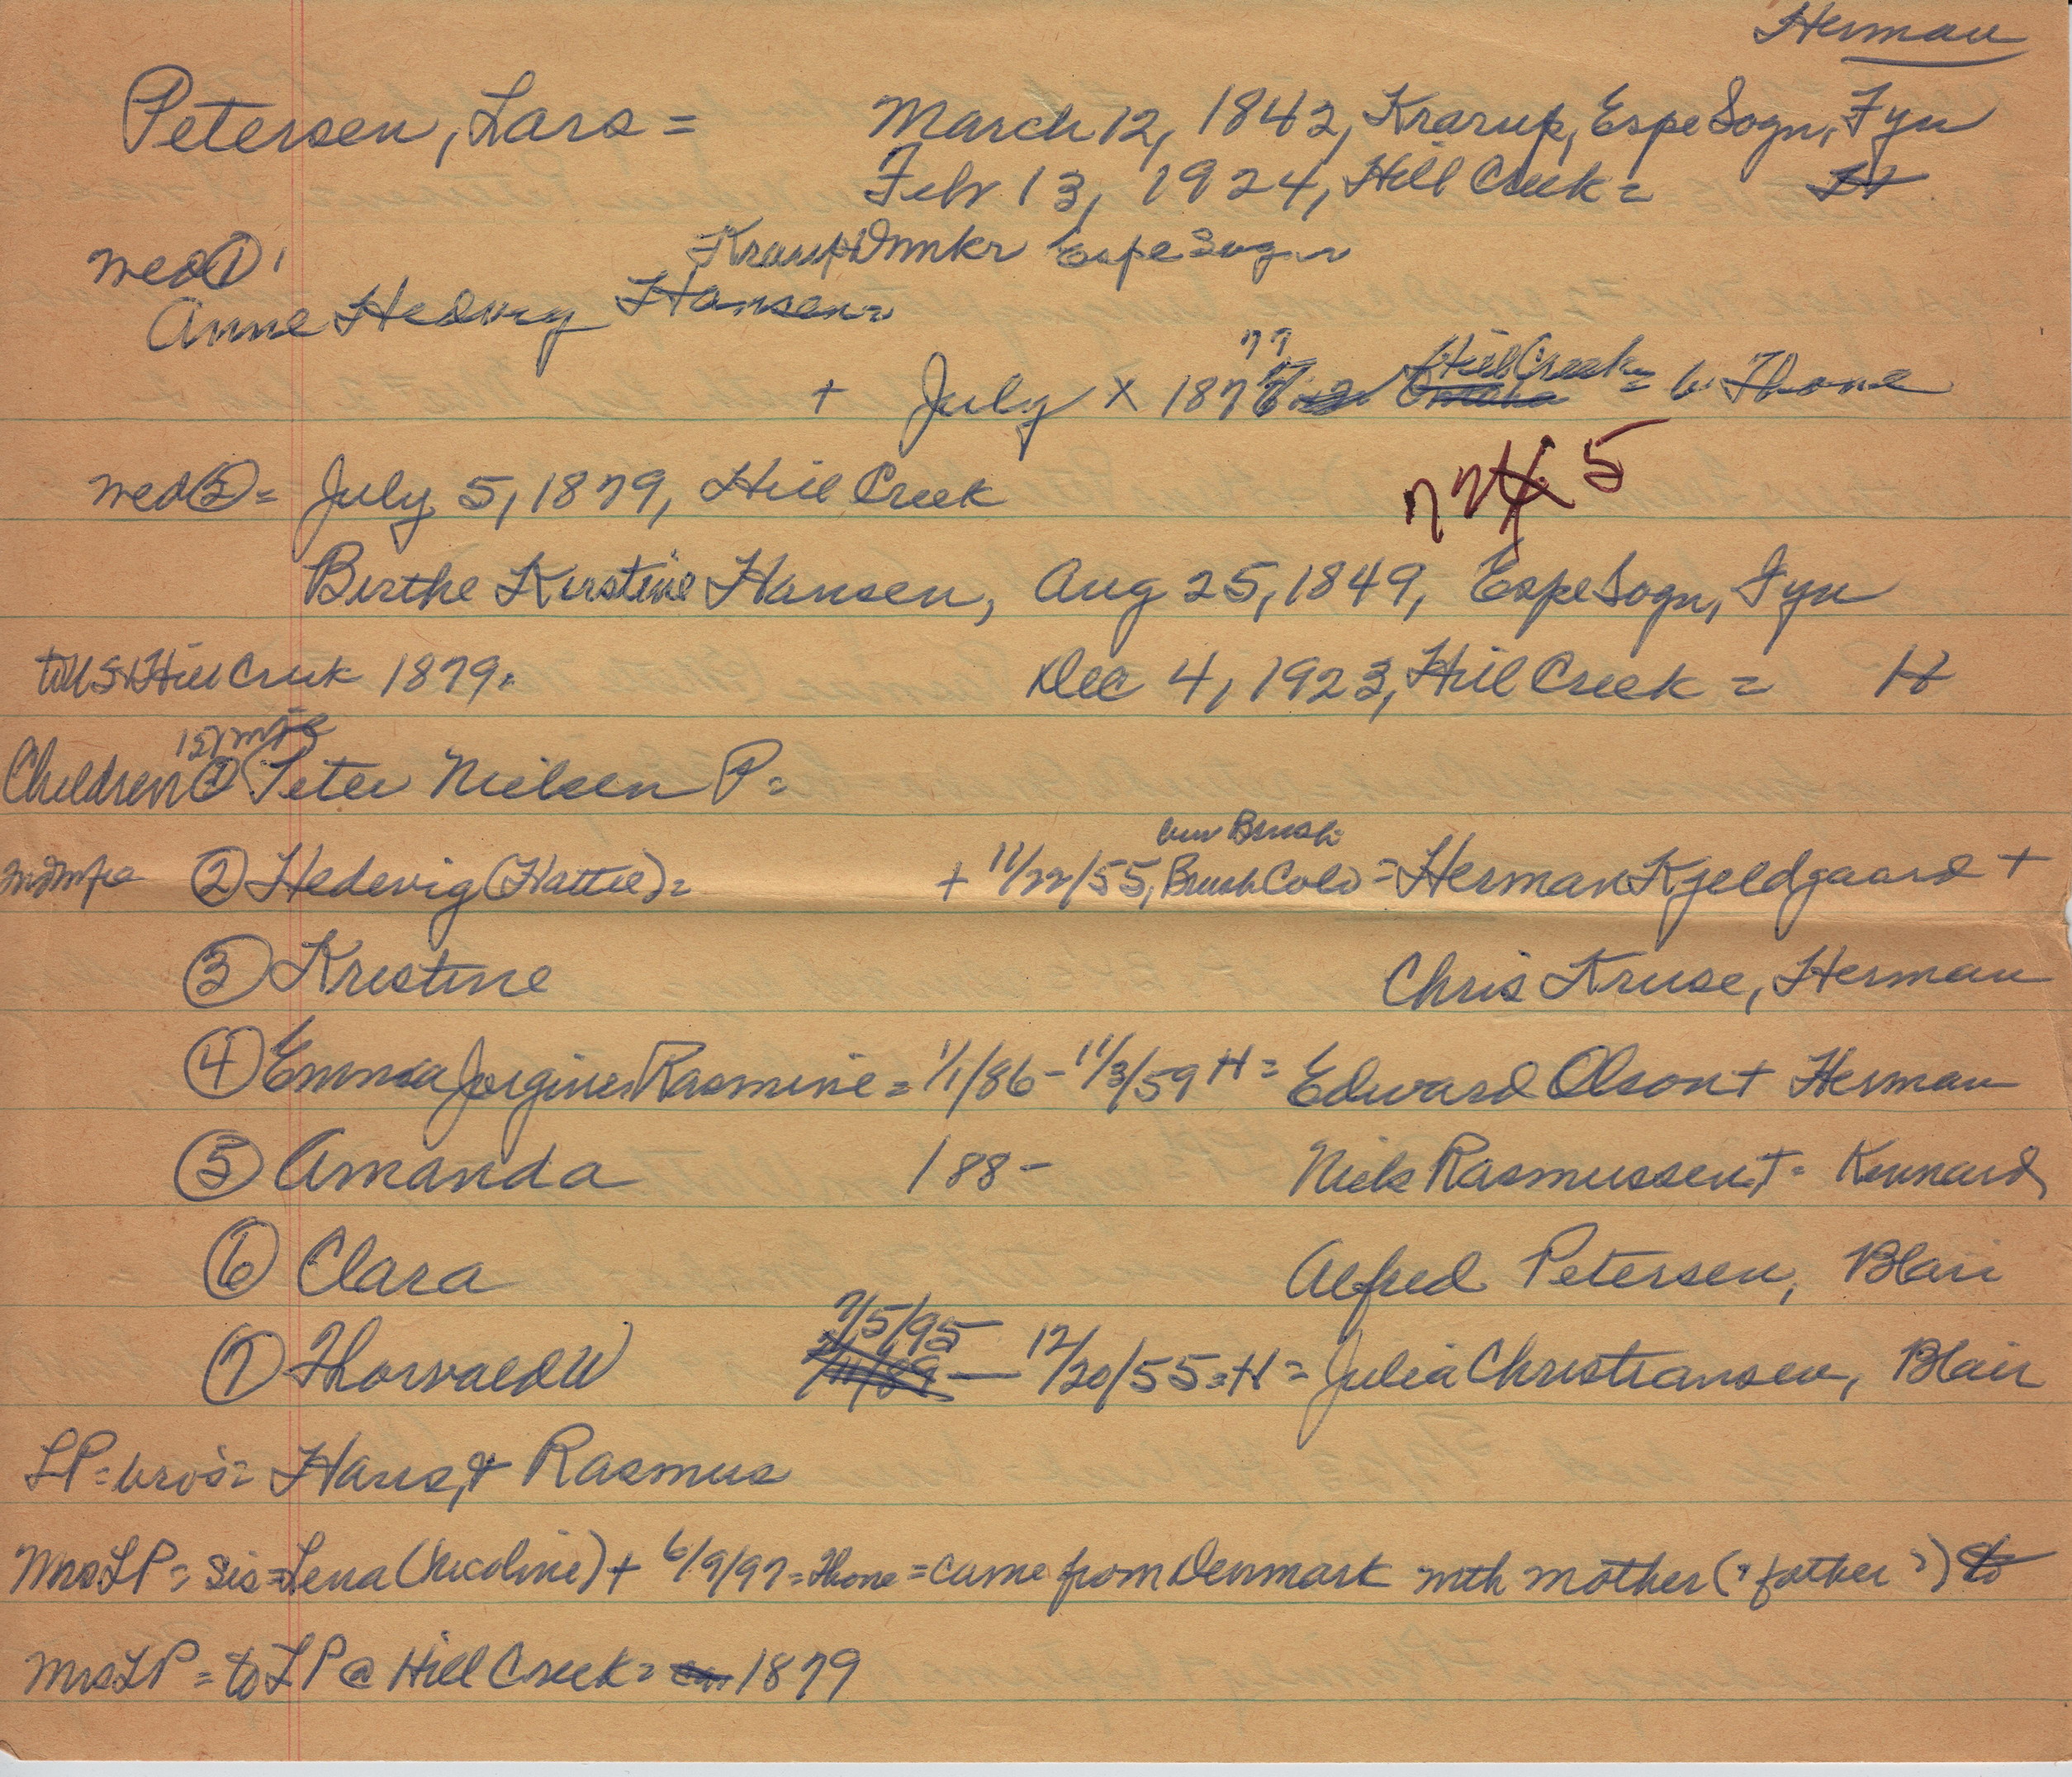 Herman
Petersen, Lars = March 12, 1842, Krarup, Espe Sogn, Fyn
Feb 13, 1924, Hill Creek = H
Krarup Espe Sogn
wed ①
Anne Hedvig Hansen =
77
Hill Creek
+ July x 187 = b. Thone
wed ② = July 5, 1879, Hill Creek
5
Birthe Kirstine Hansen, Aug 25, 1849, Espe Sogn, Fyn
to US + Hill Creek 1879. Dec 4, 1923, Hill Creek = H
1st mge
Children ① Peter Nielsen P =
bur Brush
2nd mge ② Hedevig (Hattie) = + 11/22/55, Brush Colo = Herman Kjeldgaard +
③ Kristine Chris Kruse, Herman
④ Emma Jorgine Rasmine = 1/1/86 - 11/3/59 H = Edward Olson + Herman
⑤ Amanda 188- Nick Rasmussen + = Kennard
⑥ Clara Alfred Petersen, Blair
7/5/95
⑦ Thorvald W — 12/20/55 = H = Julia Christiansen, Blair
LP = bros = Hans, + Rasmus
Mrs LP = sis = Lena (Nicoline) + 6/9/97 = Thone = came from Denmark with mother (+ father?) to
Mrs LP = to LP @ Hill Creek = 1879